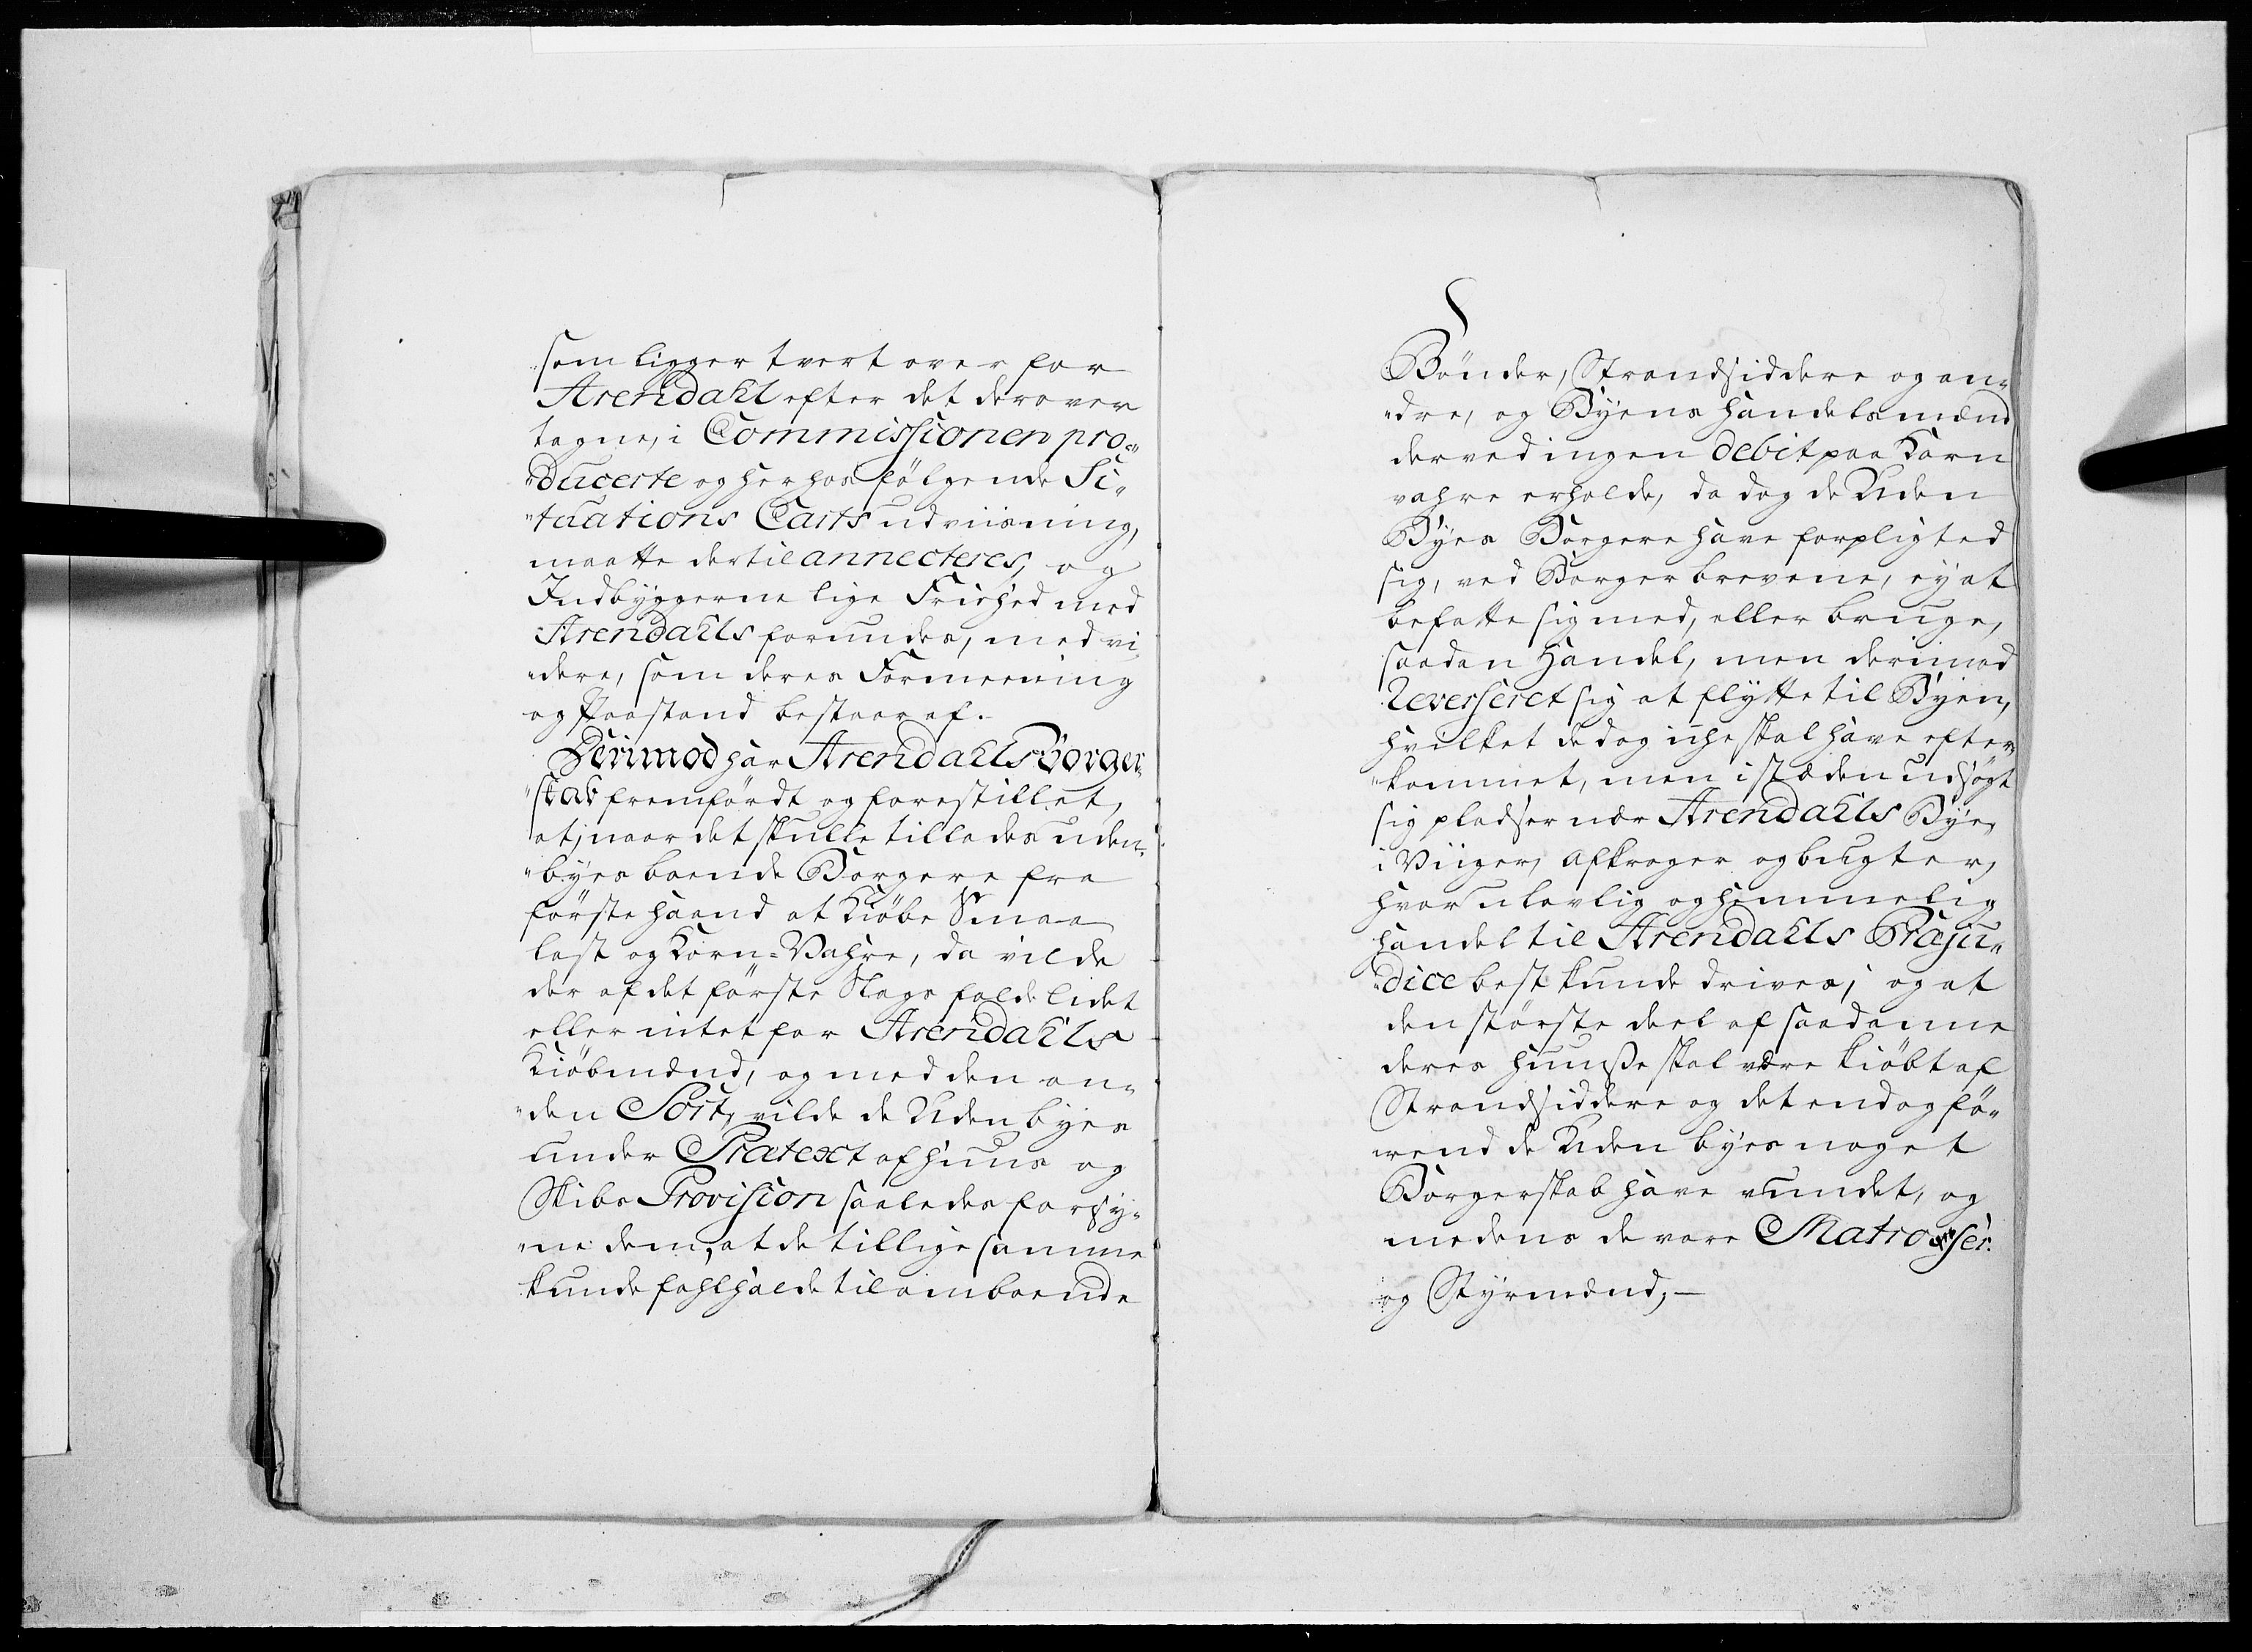 som ligger tvert over for
Arendahl efter det derover
tagne, i Commissionen pro-
"ducerte og herhos følgende Si-
"tuations Carts udviisning,
maatte dertil annecteres, og
Indbyggerne lige Friehed med
Arendahls forundes, med vi-
"dere, som deres Formeening
og Paastand bestaar af.
Derimod har Arendahls Borger-
"skab fremført og forestillet,
at, naar det skulle tillades uden-
"byes boende Borgere fra
første haand at kiøbe Smaa
last og Korn-Vahre, da vilde
der af det første Slags falde lidet
eller intet for Arendahls
Kiøbmænd, og med den an-
"den Sort, vilde de Uden byes
under Prætext af huus og
Skibs Provision saaledes forsÿ-
"ne dem, at de tillige samme
kunde fahlholde til omboende
Bønder, Strandsiddere og an-
"dre, og Bÿens handelsmænd
derved ingen debit paa Korn
vahre erholde, da dog de Uden
Bÿes Borgere have forpligted
sig, ved Borger brevene, eÿ at
befatte sig med, eller bruge,
saadan Handel, men derimod
Reverseret sig at flÿtte til Bÿen,
hvilket de dog icke skal have efter-
"kommet, men i stæden udsøgt
sig pladser nær Arendahls Bÿe,
i Viiger, Afkroger og bugter,
hvor ulovlig og hemmelig
handel til Arendahls Præju-
"dice best kunde drives; og at
den største deel af saadanne
deres huuse skal være kiøbt af
Strandsiddere og det endog fø-
"rend de Uden bÿes noget
Borgerskab have vundet, og
medens de vare Matrosser
og Stÿrmænd, —